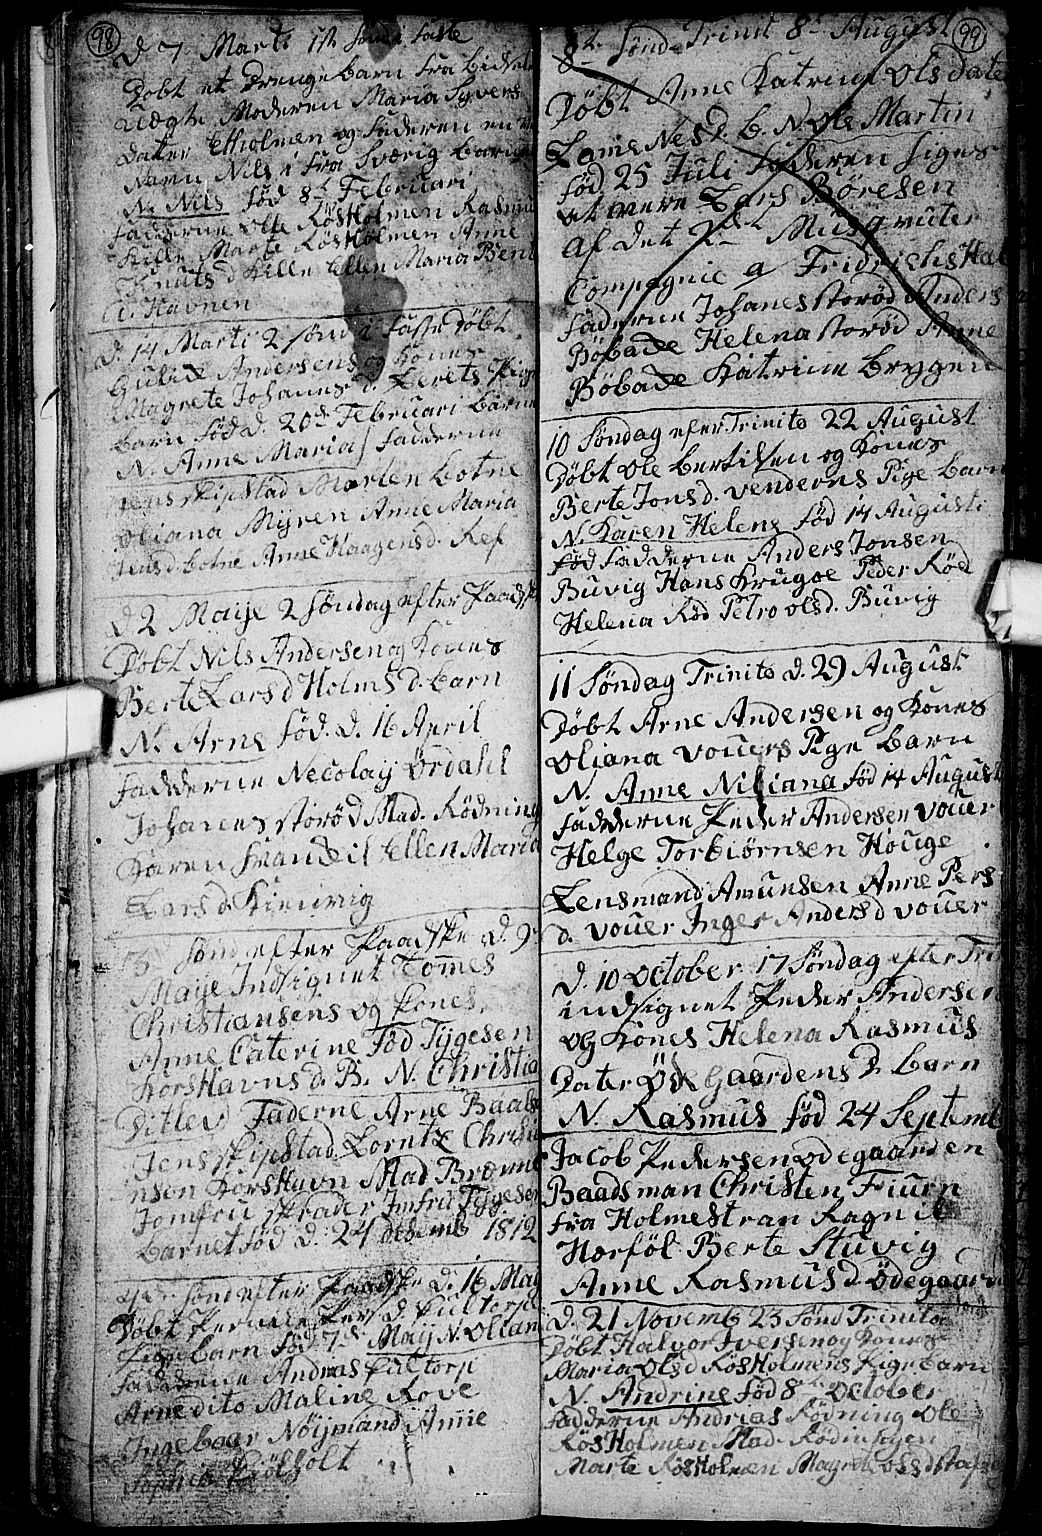 98
d 7 Marti 1st Sønd i Faste
Døbt et Drengebarn fra
uægte Moderen Maria Syvers
dater Etholmen og Faderen en
Navn Nils i fra Sverig Barnet
N. Nils fød 8de Februari
fadderne Ole Rösholmen Rasmus
Kille Marte Rösholmen Anne
Knuts d Kille Ellen Maria Bent
d. Havnen
d. 14 Marti 2 sønd i Faste døbt
Gulich Andersens og Kones
Magrete Johanes d. Lerets Pige
barn fød d. 20de Februari barne
N. Anne Maria fadderne
Jens skipstad Morten botne
Oliana Myren Anne Maria
Jens d. botne Anne Haagens d. Ref
d 2 Maije 2 Søndag efter Paaske
Døbt Nils Andersen og Kones
Berte Lars d Holms d. barn
N. Arne fød. d. 16 April
fadderne Necolaij Ördahl
Johanes storød Mad. Rödning
Karen Ellen Maria
Lars d. Kieurvig
3de Sønd efter Paadske d. 9
Maije Indsignet Tomes
Christiansens og Kones
Anne Caterine fød Tygesen
Korshavns d. B. N. Christia
Ditlev Faderne Arne Baals
Jens skipstad Lorntz Christi
ansen Korshavn Mad Brønne
Jomfru skrader Jmfru Tygesen
barnet fød d. 24 desemb 1812
4de sønd efter Paadske d. 16 Maij
Døbt Pers d Pultorps
Pigebarn fød 7de Maij N. Olian
fadderne Andreas Pultorp
Arne dito Maline Rove
Ingebaar Nöijmand Anne
Sophie Rölholt
99
8de Sønd Trinit 8de August
Døbt Anne Katrine Olsdater
Lamenes d. b. N Ole Martin
fød 25 Juli Faderen siges
at være Lars Böresen
af det 2det Musqvuter
Compagnie a Fridrichshal
fadderne Johanes storød Anders
Böbade Helena storød Anne
Böbade Katrine Bryggen
10 Søndag efter Trinite 22 August
Døbt Ole bertilsen og Kones
Berte Jons d. venderns Pige barn
N. Karen Helene fød 14 Augusti
fød Fadderne Anders Jonsen
Buvig Hans Krugoe Peder Röd
Helena Röd Petro ols d. Buvig
11 Søndag Trinite d. 29 August
Døbt Arne Andersen og Kones
Oliana vouers Pige barn
N. Anne Niliana fød 14 August
fadderne Peder Andersen vouer
Helge Torbiørnsen Houge
Lensmand Amunsen Anne Pers
d. vouer Inger Anders d vouer
d. 10 October 17 Søndag efter Trin
indsignet Peder Andersen
og Kones Helena Rasmus
Dater Ödegaardens D. barn
N. Rasmus fød 24 Septemb
Jacob Pedersen ødegaarden
Baadsman Christen Fiurn
fra Holmestran Ragnil
Horföl Berte Stuvig
Anne Rasmus d. Ödegaarden
d. 21 Novemb 23 Sønd Trinite
Døbt Halvor Iversen og Kones
Maria Ols d Rösholmens Pige barn
N. Andrine fød 8de October
fadderne Andrias Rödning Ole
Rösholmen Mad. Rödningen
Marte Rösholmen Magrete ols d